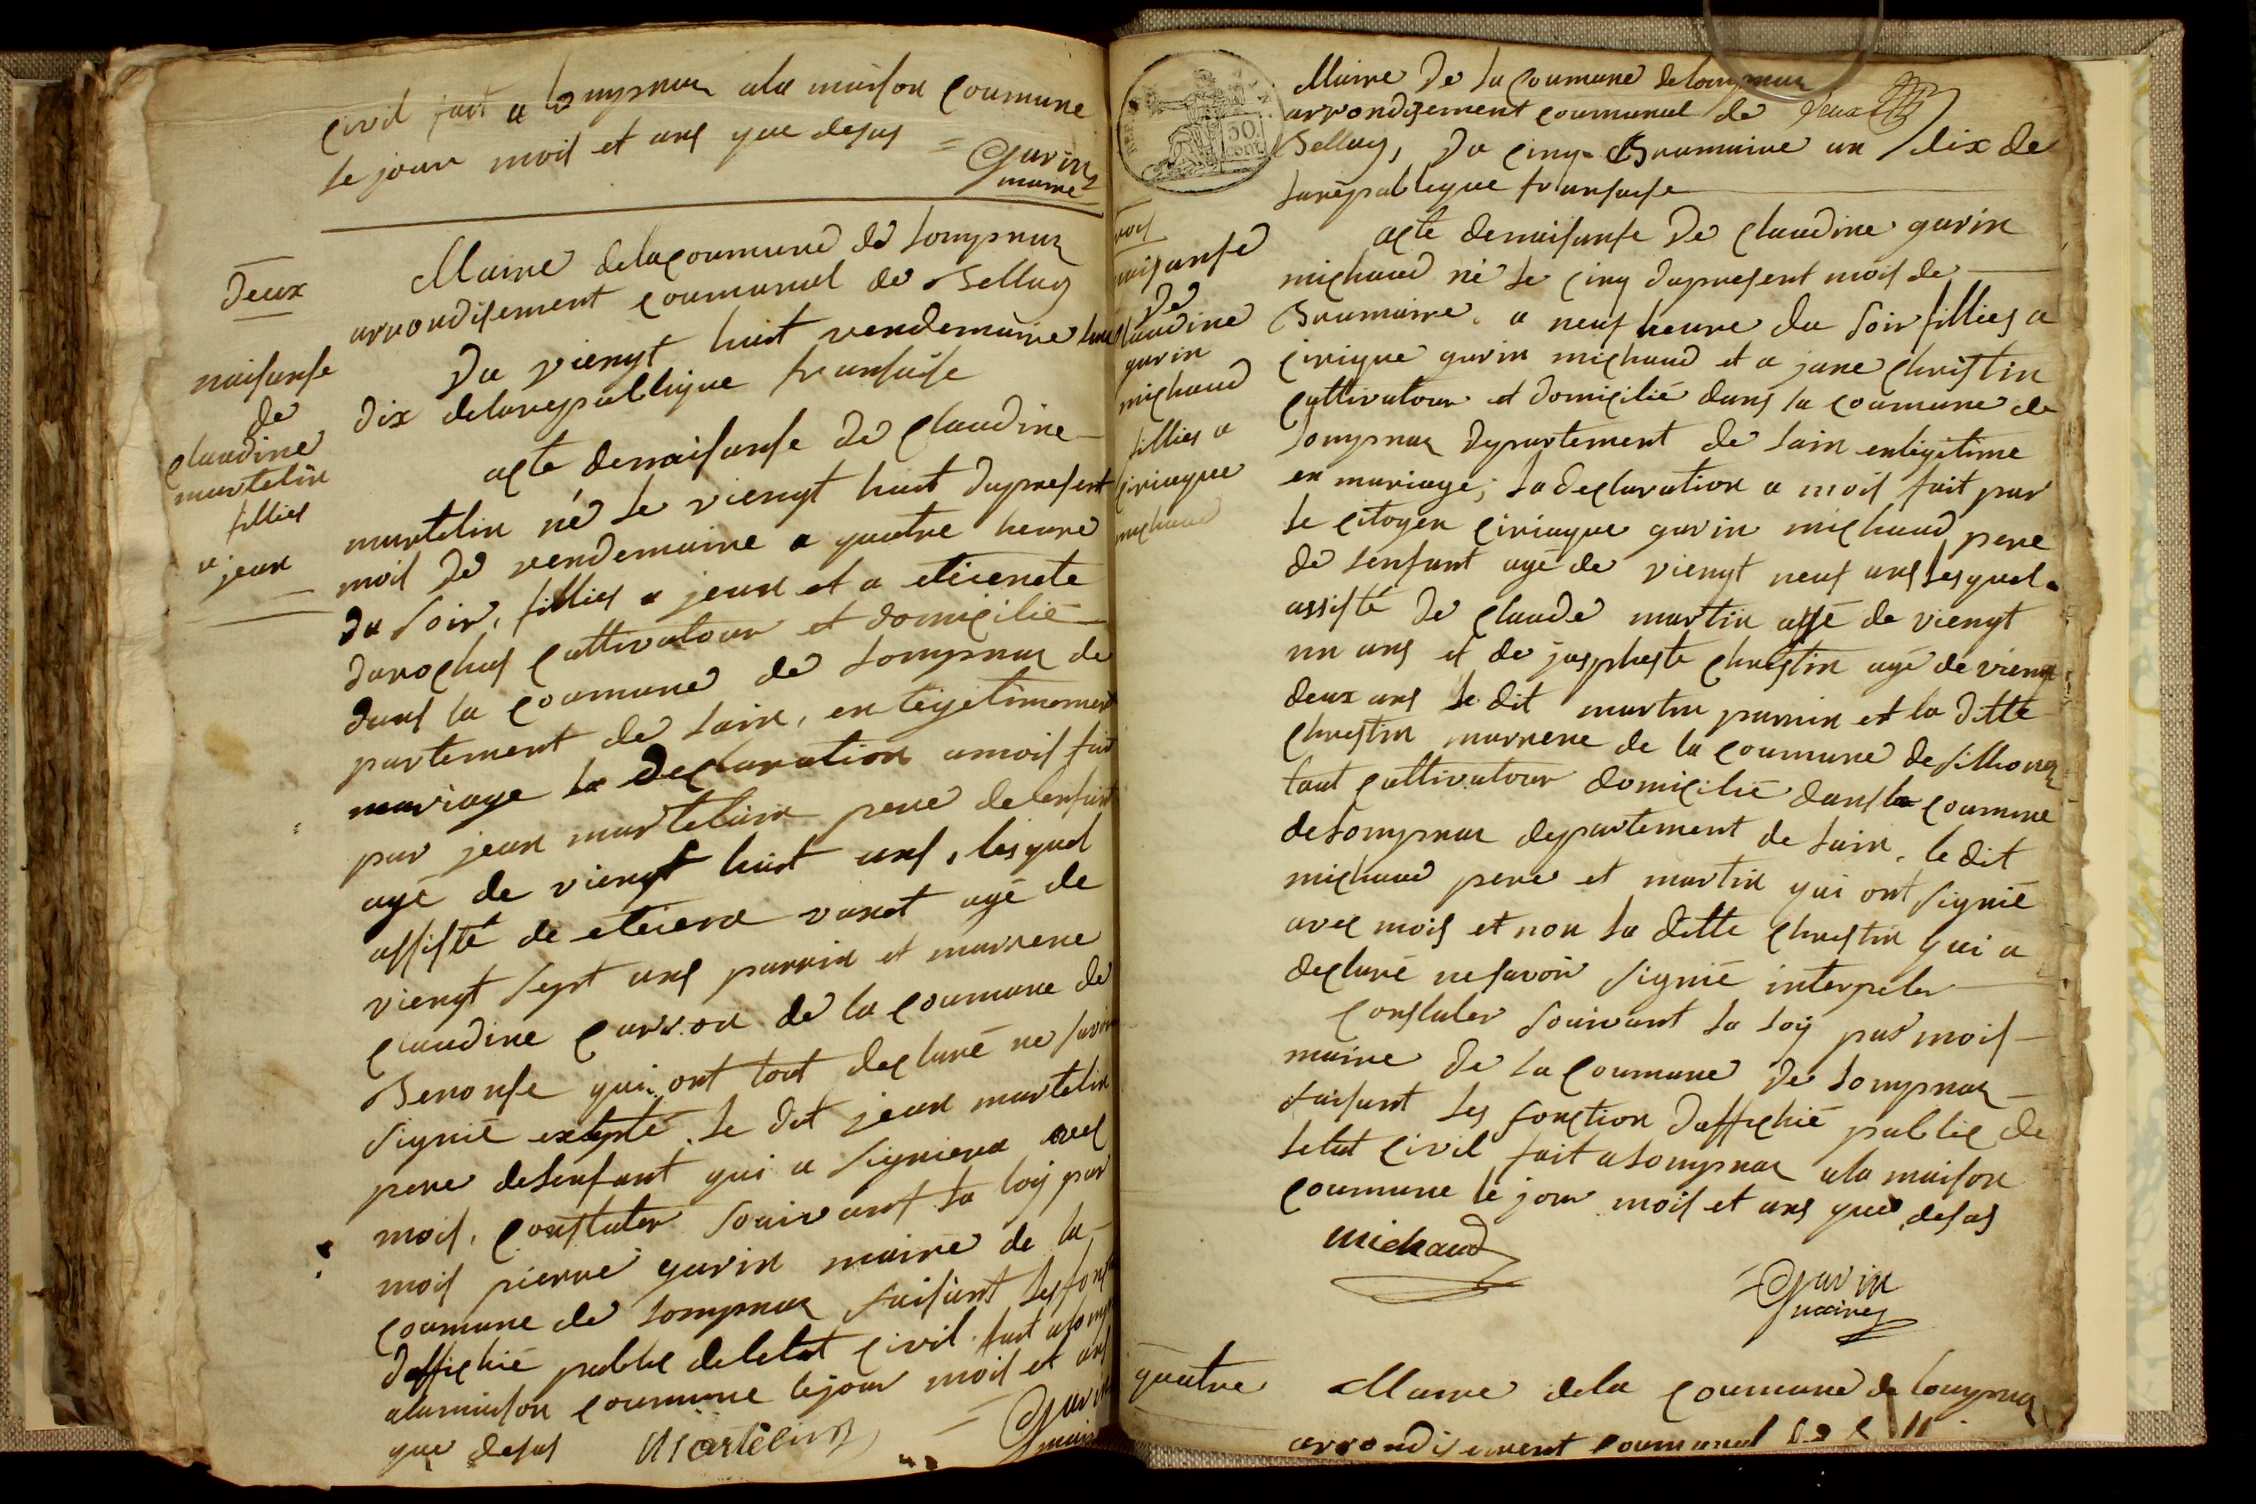 civil fait a lompnaz ala maison coumune
le jour mois et ans que desus
Gavin
maire
deux
naisanse
de
claudine
martelin
fillies
a jean
Maire delacoumune de lompnaz
arrondisement coumunal de Belley
Du viengt huit vendemaire
dix delarepublique fransaise
acte denaisanse de claudine
martelin né le viengt huit dupresent
mois de vendemaire a quatre heure
du soir, fillies a jean et a etienete
durochas cultivatour et domicilié
dans la coumune de lompnaz de
partement de lain, en legetimement
mariage la declaration amois fait
par jean martelain pere delenfant
agé de viengt huit ans, lesquel
assisté de etiene vanet agé de
viengt sept ans parrin et marrene
claudine carron de la coumune de
Benonse qui ont tout declaré ne savoir
signié exepté le dit jean martelin
pere delenfant qui a signiera avec
mois, constater souivant la loy par
mois pierre gavin maire de la
coumune de lompnaz faisant les fonc
daffichié public deletat civil fait a lomp
alamaison coumune lejour mois et ans
que desus
Martelin
Gavin
maire
50
cent
Maire De la coumune de lompnaz
arrondisement coumunal de
Belley, Du cinq Brumaire an dix de
larépublique fransaise
trois
naisanse
De
claudine
gavin
michaud
fillies a
ciriaque
michaud
acte denaisanse De claudine gavin
michaud né le cinq dupresent mois de
Brumaire a neuf heure du soir fillies a
cirique gavin michaud et a jane christin
cultivatour et domicilié dans la coumune de
lompnaz departement de lain enlegitime
en mariage; la declaration a mois fait par
le citoyen ciriaque gavin michaud pere
de lenfant agé de viengt neuf ans lesquel
assisté de claude martin agé de viengt
un ans et de jospheste christin agé de viengt
deux ans le dit martin parrin et la ditte
christin marrene de la coumune de
tout cultivatour domicilié dansla coumune
delompnaz departement de lain, le dit
michaud pere et martin qui ont signié
avec mois et non la ditte christin qui a
declaré nesavoir signié interpeler
constater souivant la loy par mois
maire de la coumune de lompnaz
faisant les fonction daffichié public de
letat civil fait a lompnaz ala maison
coumune le jour mois et ans que desus
michaud
Gavin
maire
quatre
Maire dela coumune de lompnaz
arrondisement coumunal